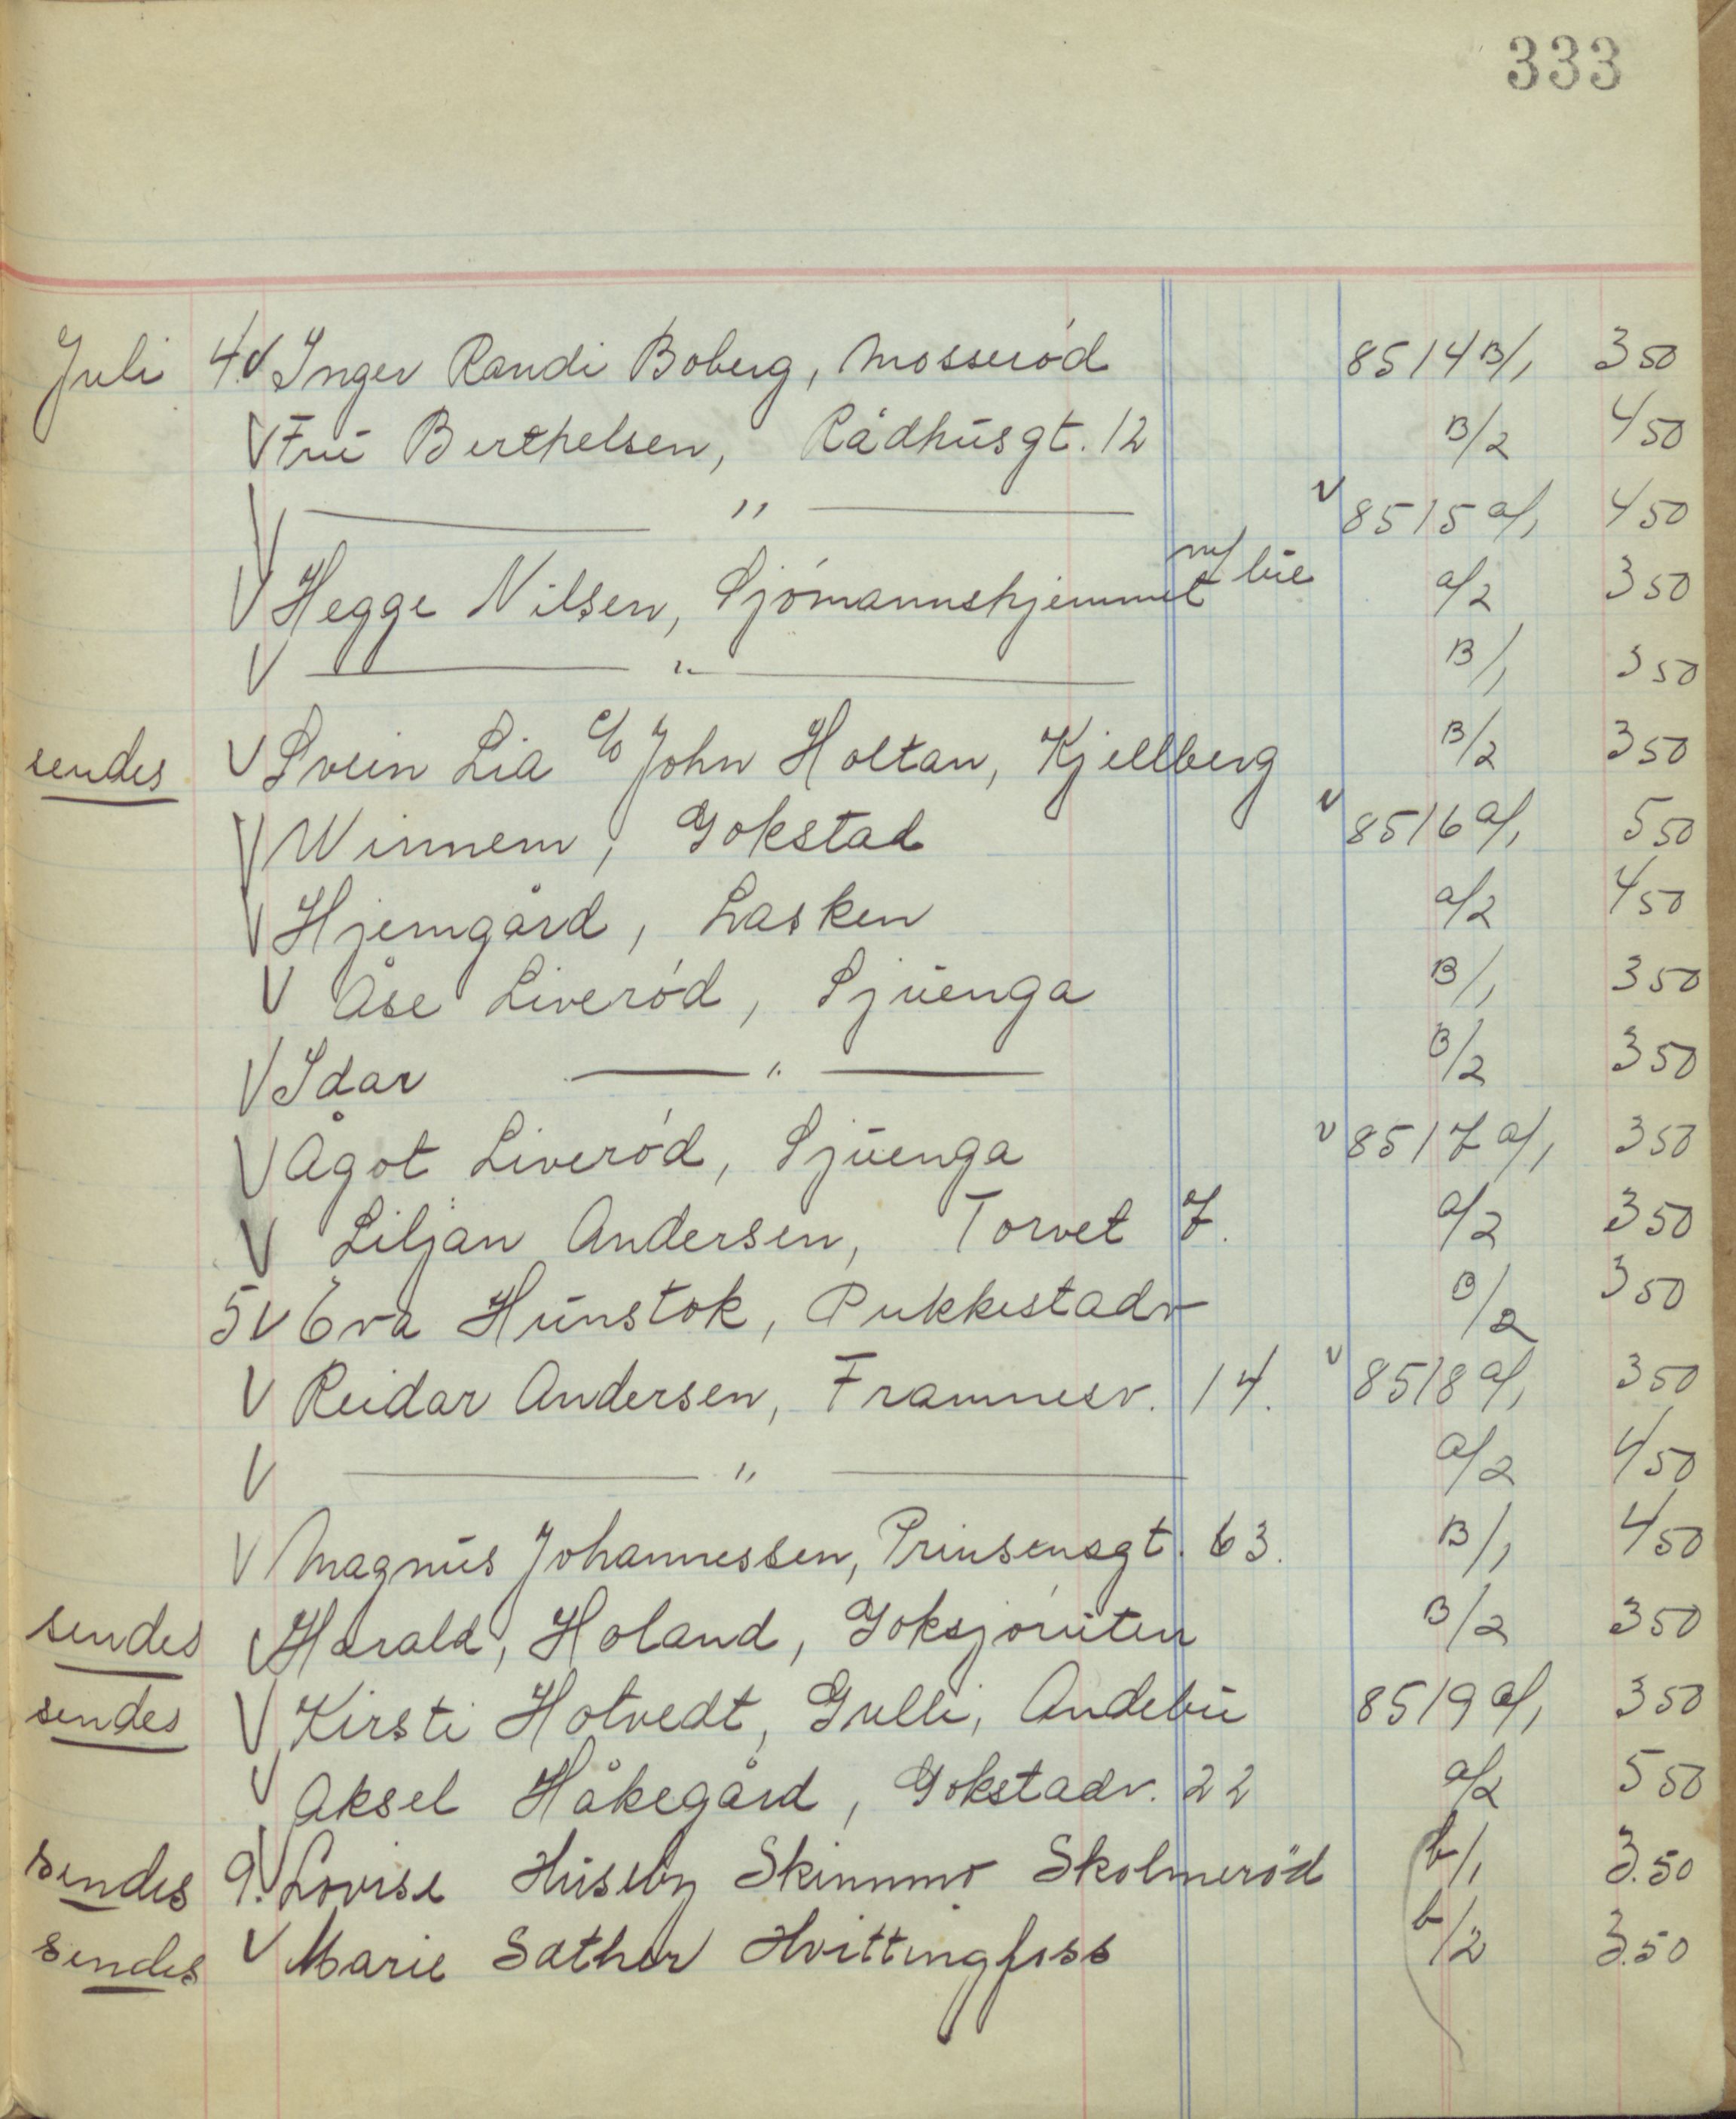 333
Juli 4. V Inger Randi Boberg, Mosserød 8514 B/1 3 50
V Fru Berthelsen, Rådhusgt. 12 B/2 4 50
V — " — V 8515 a/1 4 50
V Hegge Nilsen, Sjømannshjemmet m/ bil a/2 3 50
V — " — B/1 3 50
sendes V Svein Lia c/o John Holtan, Kjellberg B/2 3 50
V Winnem, Gokstad V 8516 a/1 5 50
V Hjemgård, Lasken a/2 4 50
V Åse Liverød, Sjuenga B/1 3 50
V Idar — " — B/2 3 50
V Ågot Liverød, Sjuenga V 8517 a/1 3 50
V Liljan Andersen, Torvet 7. a/2 3 50
5 V Eva Hunstok, Pukkestadv B/2 3 50
V Reidar Andersen, Framnesv. 14. V 8518 a/1 3 50
V — " — a/2 4 50
V Magnus Johannessen, Prinsensgt. 63. B/1 4 50
sendes V Harald, Holand, Goksjøruten B/2 3 50
sendes V Kirsti Hotvedt, Gulli, Andebu 8519 a/1 3 50
V Aksel Håkegård, Gokstadv. 22 a/2 5 50
sendes 9. V Lovise Huseby Skinmo Skolmerød b/1 3.50
sendes V Marie Sather Hvittingfoss b/2 3.50